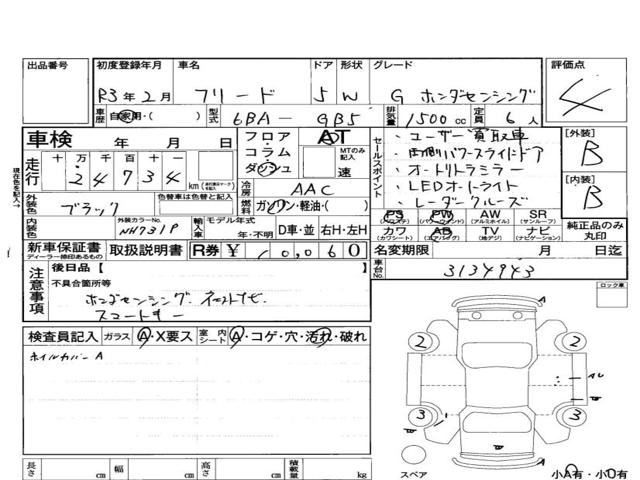 出品番号 初度登録年月 車名 ドア 形状 グレード 評価点
R3年2月 フリード 5 W G ホンダセンシング 4
車歴 自家用・( ) 型式 6BA-GB5 排気量 1500cc 定員 6人
車検 年 月 日 フロア コラム ダッシュ AT MTのみ記入 速
セールスポイント
・ユーザー買取車
・両側パワースライドドア
・オートリトラミラー
・LEDオートライト
・レーダークルーズ
[外装] B
[内装] B
現在色を記入→
走行 十 万 千 百 十 一
24734 km
冷房 AAC
外装色 ブラック 色替車は色替と記入 燃料 ガソリン・軽油・( )
内装色 外装カラーNo. NH731P 輸入車 モデル年式 年・不明 D車・並 右H・左H
PS PW AW SR
(パワステ) (パワーウィンド) (アルミホイル) (サンルーフ)
カワ AB TV ナビ
(カワシート) (エアバッグ) (地デジ) (ナビゲーション)
純正品のみ丸印
新車保証書 取扱説明書 R券 ¥10,060 名変期限 月 日迄
ディーラー捺印あるもの
車台No. 3134943
注意事項 後日品【 】
不具合箇所等
ホンダセンシング.
スマートキー
ロック車
検査員記入 ガラス A・X要ス 室内シート A・コゲ・穴・汚れ・破れ
ホイルカバーA
A
2 2
3 3
スペア
小A有・小U有
長さ cm 幅 cm 高さ cm 積載量 kg